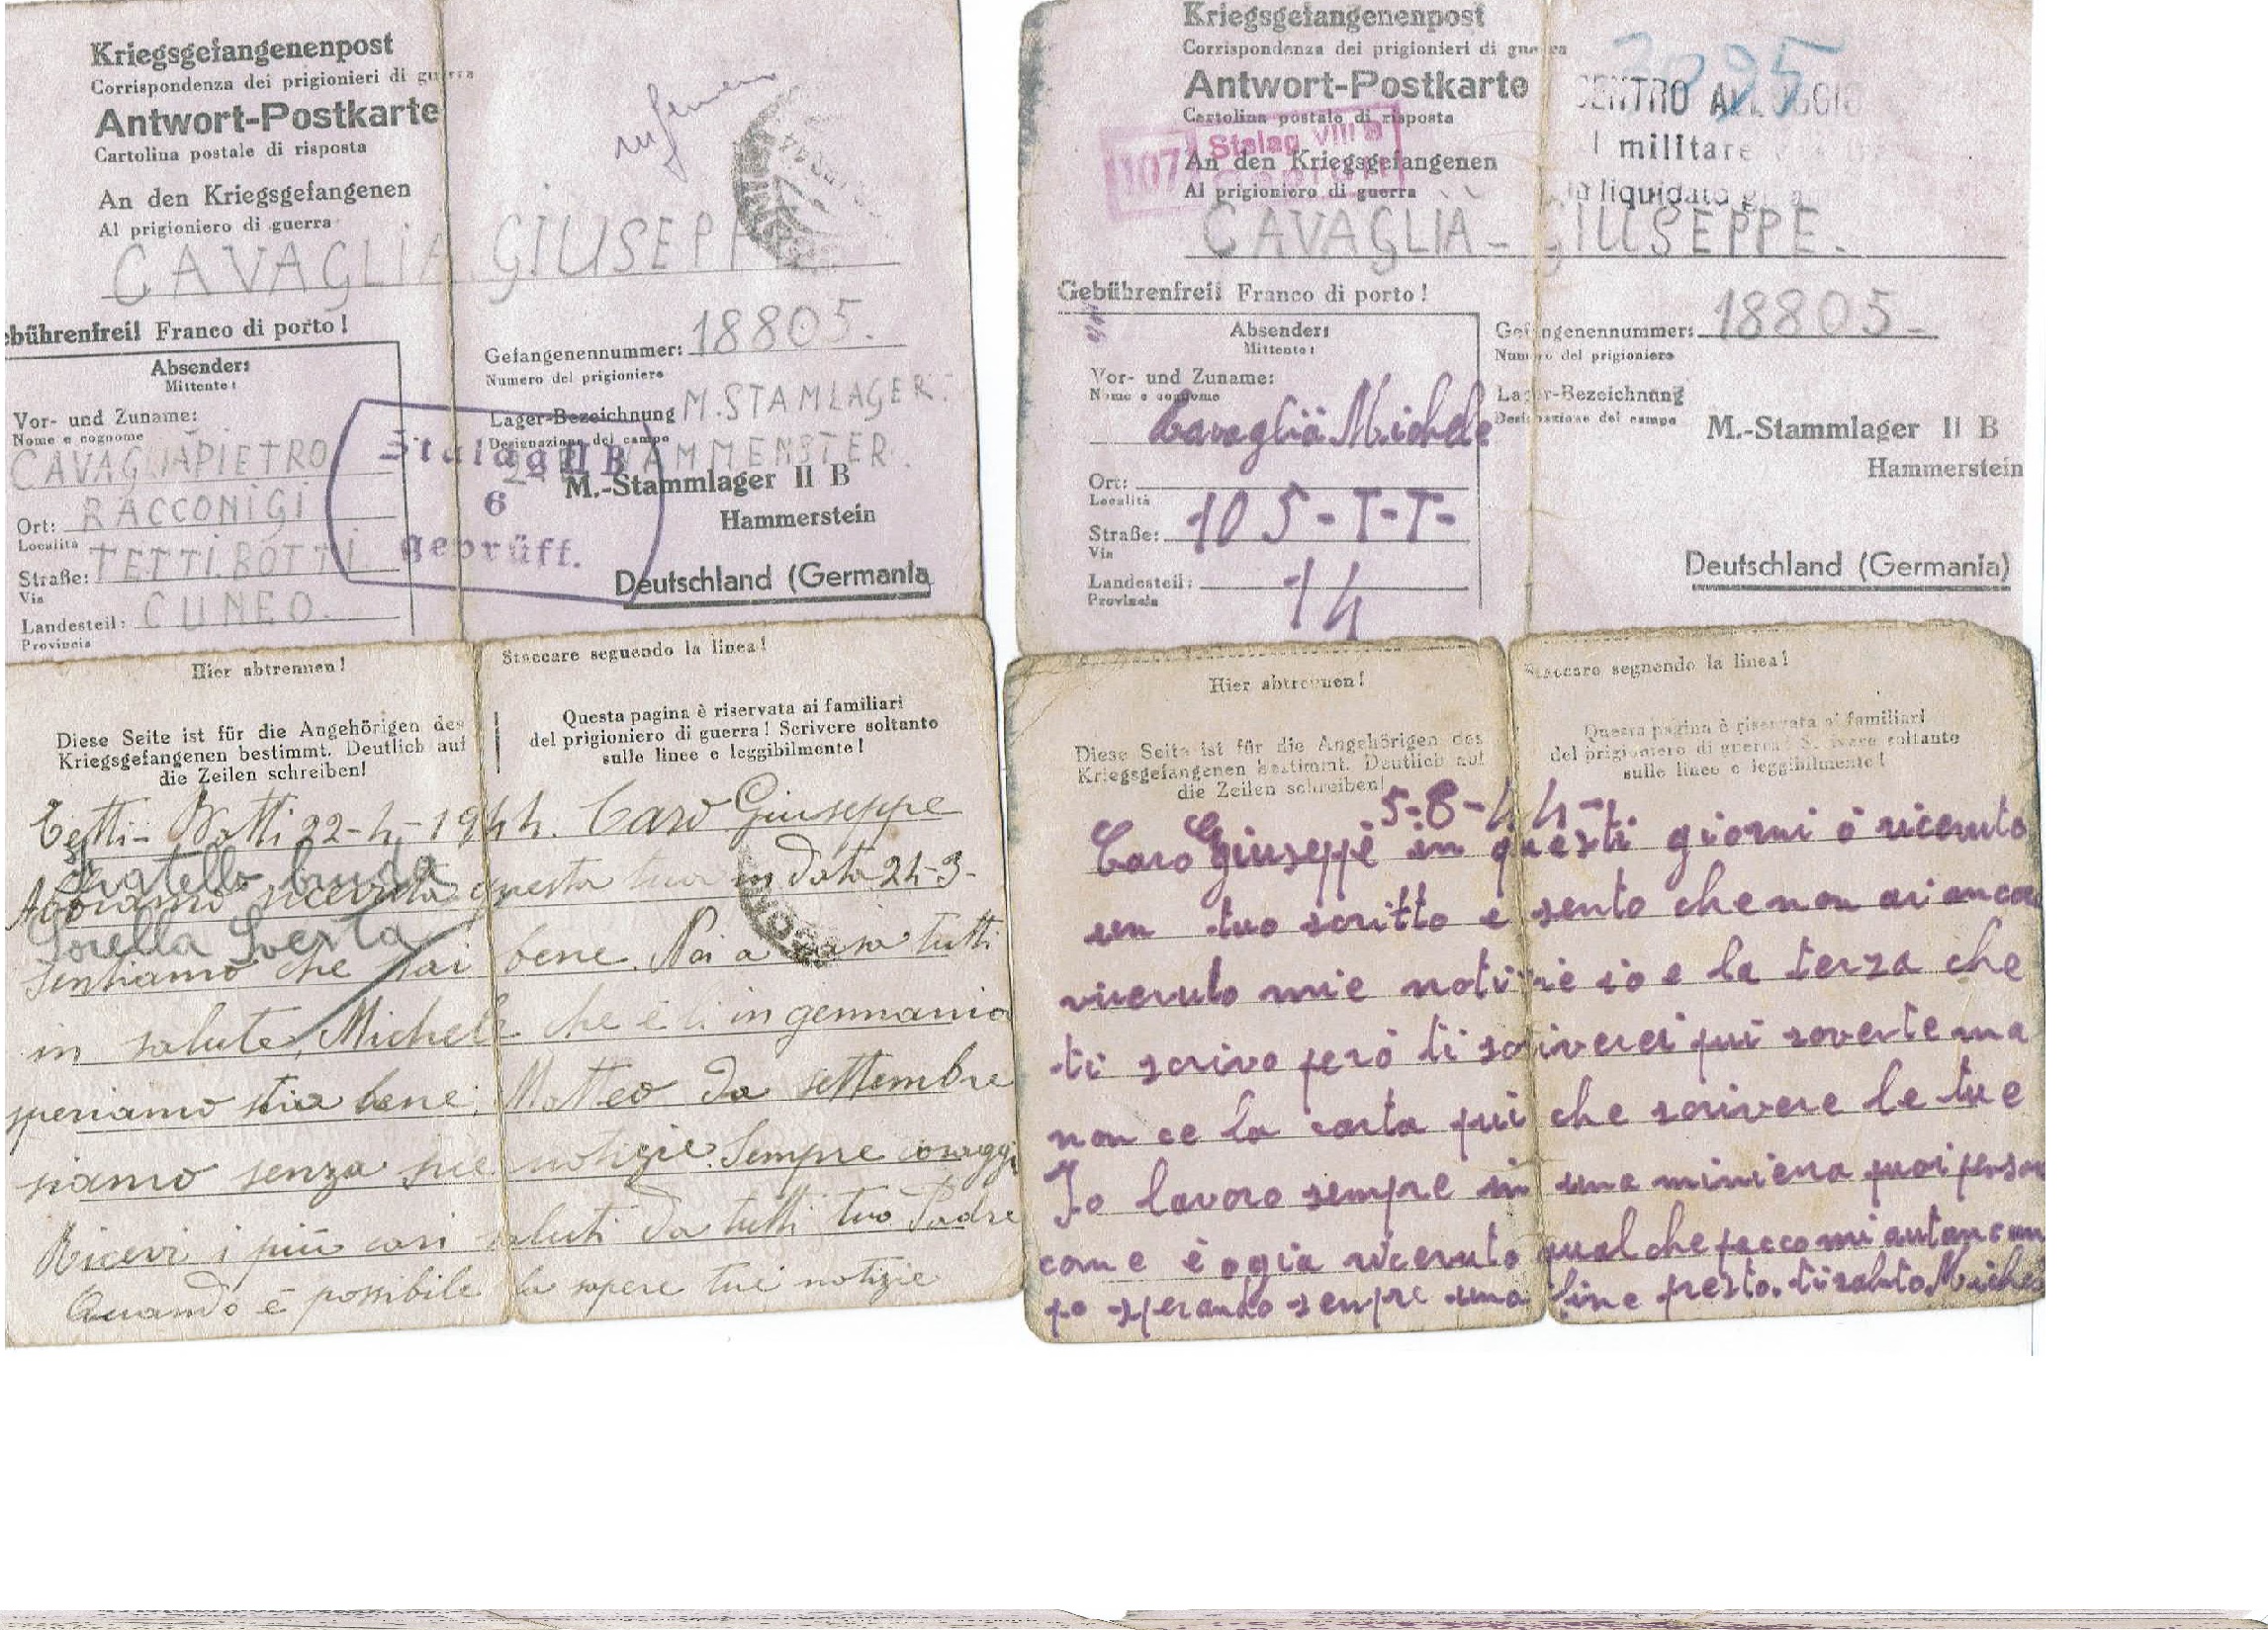 Kriegsgefangenenpost
Corrispondenza dei prigionieri di guerra
Antwort-Postkarte
Cartolina postale di risposta
An den Kriegsgefangenen
Al prigioniero di guerra
CAVAGLIA GIUSEPPE
Gebührenfrei! Franco di porto!
Absender:
Mittente:
Vor- und Zuname:
Nome e cognome
CAVAGLIA PIETRO
Ort: RACCONIGI
Località
Straße: TETTI BOTTI
Via
Landesteil: CUNEO.
Provincia
Gefangenennummer: 18805.
Numero del prigioniero
Lager-Bezeichnung M. STAMLAGER.
Designazione del campo
Stalag II B
6
geprüft.
M.-Stammlager II B
Hammerstein
Deutschland (Germania
Hier abtrennen! Staccare seguendo la linea!
Diese Seite ist für die Angehörigen des
Kriegsgefangenen bestimmt. Deutlich auf
die Zeilen schreiben!
Questa pagina è riservata ai familiari
del prigioniero di guerra! Scrivere soltanto
sulle linee e leggibilmente!
Tetti-Botti 22-4-1944. Caro Giuseppe
Fratello
Abbiamo ricevuta questa tua in data 24-3-
Sorella
sentiamo che stai bene. Noi a casa tutti
in salute, Michele che è lì in germania
speriamo stia bene, Matteo da settembre
siamo senza sue notizie. Sempre coraggi
Ricevi i più cari saluti da tutti tuo Padre
Quando è possibile fa sapere tue notizie
Kriegsgefangenenpost
Corrispondenza dei prigionieri di guerra
Antwort-Postkarte
Cartolina postale di risposta
An den Kriegsgefangenen
Al prigioniero di guerra
3095
CENTRO ALLOGGIO
militare
liquidato
107
Stalag VIII B
CAVAGLIÀ - GIUSEPPE.
Gebührenfrei! Franco di porto!
Absender:
Mittente:
Vor- und Zuname:
Nome e cognome
Cavaglià Michele
Ort:
Località
Straße: 105-T-T-
Via
Landesteil: 14
Provincia
Gefangenennummer: 18805-
Numero del prigioniero
Lager-Bezeichnung
Designazione del campo
M.-Stammlager II B
Hammerstein
Deutschland (Germania)
Hier abtrennen! Staccare seguendo la linea!
Diese Seite ist für die Angehörigen des
Kriegsgefangenen bestimmt. Deutlich auf
die Zeilen schreiben!
Questa pagina è riservata ai familiari
del prigioniero di guerra! Scrivere soltanto
sulle linee e leggibilmente!
5-8-44-
Caro Giuseppe in questi giorni ó ricevuto
un tuo scritto e sento che non ai ancora
riceruto mie notizie io e la terza che
ti scrivo però ti scriverei più soverte ma
non ce la carta più che scrivere le tue
Io lavoro sempre in una miniera puoi pensar
come è ogia riceruto qualche pacco mi
po sperando senpre una fine presto. ti saluto Michel